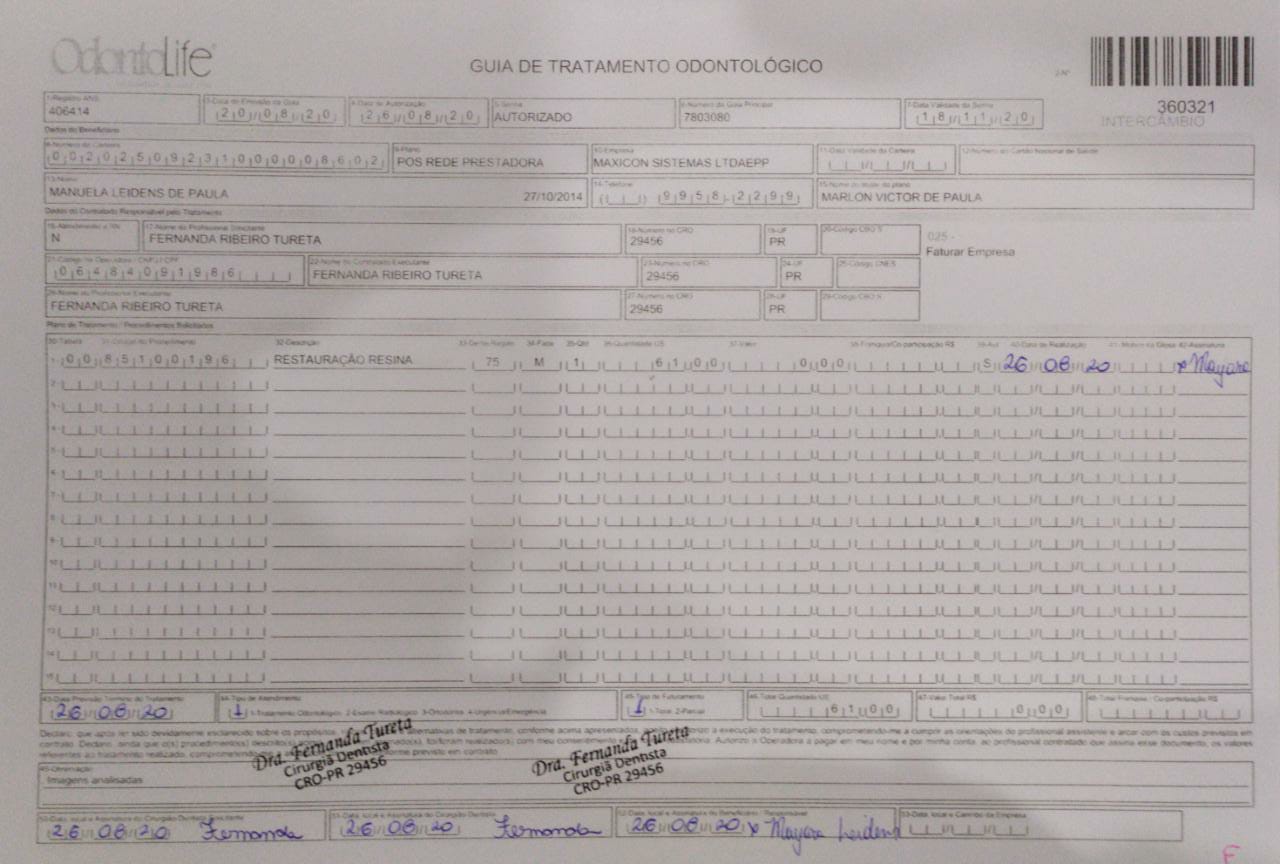 OdontoLife
GUIA DE TRATAMENTO ODONTOLÓGICO
2-Nº
360321
INTERCÂMBIO
1-Registro ANS
406414
3-Data de Emissão da Guia
20/08/20
4-Data de Autorização
26/08/20
5-Senha
AUTORIZADO
6-Número da Guia Principal
7803080
7-Data Validade da Senha
18/11/20
Dados do Beneficiário
8-Número da Carteira
00202509231000008602
9-Plano
POS REDE PRESTADORA
10-Empresa
MAXICON SISTEMAS LTDAEPP
11-Data Validade da Carteira
12-Número do Cartão Nacional de Saúde
13-Nome
MANUELA LEIDENS DE PAULA 27/10/2014
14-Telefone
( ) 9958-2299
15-Nome do titular do plano
MARLON VICTOR DE PAULA
Dados do Contratado Responsável pelo Tratamento
16-Atendimento a RN
N
17-Nome do Profissional Solicitante
FERNANDA RIBEIRO TURETA
18-Número no CRO
29456
19-UF
PR
20-Código CBO S
025 -
Faturar Empresa
21-Código na Operadora / CNPJ / CPF
06484091986
22-Nome do Contratado Executante
FERNANDA RIBEIRO TURETA
23-Número no CRO
29456
24-UF
PR
25-Código CNES
26-Nome do Profissional Executante
FERNANDA RIBEIRO TURETA
27-Número no CRO
29456
28-UF
PR
29-Código CBO S
Plano de Tratamento / Procedimentos Solicitados
30-Tabela 31-Código do Procedimento 32-Descrição 33-Dente/Região 34-Face 35-Qtd 36-Quantidade US 37-Valor 38-Franquia/Co-participação R$ 39-Aut 40-Data de Realização 41-Motivo da Glosa 42-Assinatura
1- 00 85100196 RESTAURAÇÃO RESINA 75 M 1 61,00 0,00 S 26/08/20 x Mayara
2-
3-
4-
5-
6-
7-
8-
9-
10-
11-
12-
13-
14-
15-
43-Data Previsão Término do Tratamento
26/08/20
44-Tipo de Atendimento
1 1-Tratamento Odontológico 2-Exame Radiológico 3-Ortodontia 4-Urgência/Emergência
45-Tipo de Faturamento
1 1-Total 2-Parcial
46-Total Quantidade US
61,00
47-Valor Total R$
0,00
48-Total Franquia / Co-participação R$
Declaro, que após ter sido devidamente esclarecido sobre os propósitos, alternativas de tratamento, conforme acima apresentados, a execução do tratamento, comprometendo-me a cumprir as orientações do profissional assistente e arcar com os custos previstos em
contrato. Declaro, ainda que o(s) procedimento(s) foi/foram realizado(s) com meu consentimento Autorizo a Operadora a pagar em meu nome e por minha conta, ao profissional contratado que assina esse documento, os valores
referentes ao tratamento realizado, comprometendo-me previsto em contrato.
Dra. Fernanda Tureta
Cirurgiã Dentista
CRO-PR 29456
Dra. Fernanda Tureta
Cirurgiã Dentista
CRO-PR 29456
49-Observação
Imagens analisadas
50-Data, local e Assinatura do Cirurgião Dentista Solicitante
26/08/20 Fernanda
51-Data, local e Assinatura do Cirurgião Dentista
26/08/20 Fernanda
52-Data, local e Assinatura do Beneficiário / Responsável
26/08/20 x Mayara Leidens
53-Data, local e Carimbo da Empresa
F